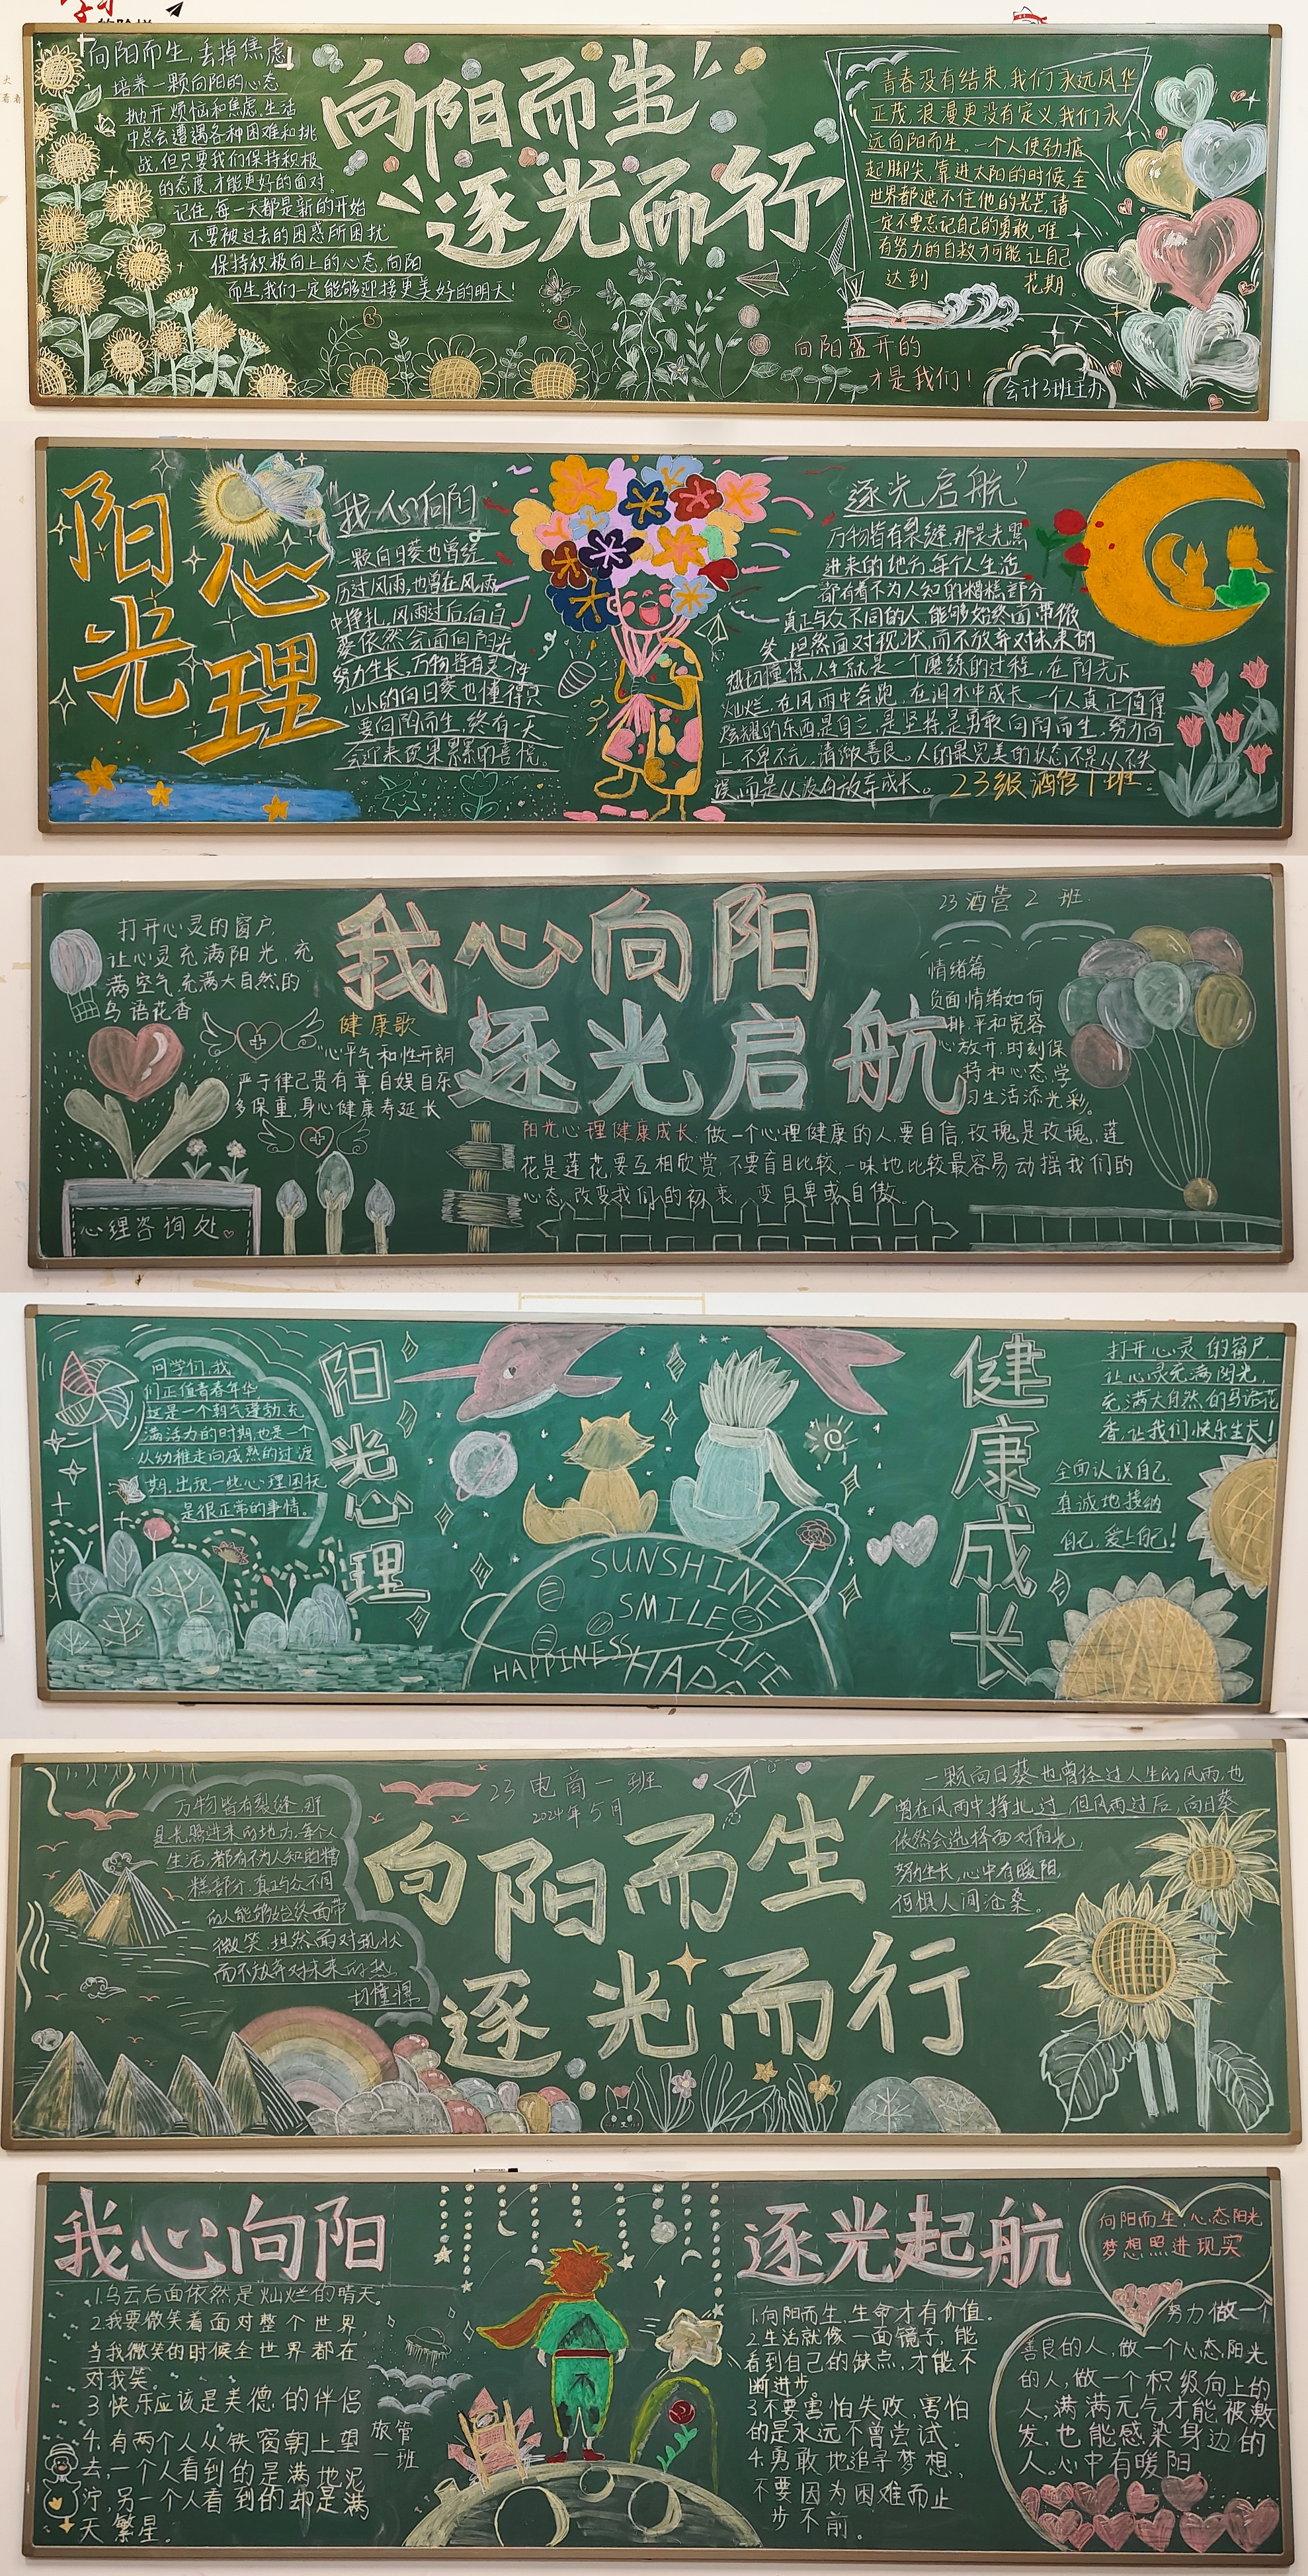 向阳而生,丢掉焦虑
培养一颗向阳的心态
抛开烦恼和焦虑,生活
中总会遭遇各种困难和挑
战,但只要我们保持积极
的态度,才能更好的面对。
记住,每一天都是新的开始
不要被过去的困惑所困扰
保持积极向上的心态,向阳
而生,我们一定能够迎接更美好的明天!
向阳而生
逐光而行
青春没有结束,我们永远风华
正茂,浪漫更没有定义,我们永
远向阳而生。一个人使劲掂
起脚尖,靠进太阳的时候,全
世界都遮不住他的光芒,请
一定不要忘记自己的勇敢,唯
有努力的自救才可能让自己
达到 花期。
向阳盛开的
才是我们!
会计3班主办
阳光
心理
我们向阳
一颗向日葵也曾经
历过风雨,也曾在风雨
中挣扎,风雨过后,向日
葵依然会面向阳光
努力生长,万物皆有灵
小小的向日葵也懂得只
要向阳而生,终有一天
会迎来硕果累累的喜悦。
逐光启航
万物皆有裂缝,那是光照
进来的地方,每个人生活
都有着不为人知的糟糕部分
真正与众不同的人,能够始终面带微
笑,坦然面对现状,而不放弃对未来的
热切憧憬,人生就是一个磨练的过程,在阳光下
灿烂,在风雨中奔跑,在泪水中成长,一个人真正值得
炫耀的东西是自立,是坚持,是勇敢,向阳而生,努力向
上,不卑不亢,清澈善良。人的最完美的状态不是从不失
误,而是从没有放弃成长。
23级酒管1班.
打开心灵的窗户,
让心灵充满阳光,充
满空气,充满大自然的
鸟语花香
健康歌
心平气和性开朗
严于律己贵有章,自娱自乐
多保重,身心健康寿延长
心理咨询处
我心向阳
逐光启航
23酒管2班.
情绪篇
负面情绪如何
排,平和宽容
心放开,时刻保
持和心态,学
习生活添光彩。
阳光心理健康成长:做一个心理健康的人,要自信,玫瑰是玫瑰,莲
花是莲花,要互相欣赏,不要盲目比较,一味地比较最容易动摇我们的
心态,改变我们的初衷。变自卑或自傲。
同学们,我
们正值青春年华
这是一个朝气蓬勃,充
满活力的时期,也是一个
从幼稚走向成熟的过渡
期,出现一些心理困扰
是很正常的事情。
阳光心理
SUNSHINE
SMILE
HAPPINESS
LIFE
健康成长
打开心灵的窗户
让心灵充满阳光,
充满大自然的鸟语花
香,让我们快乐生长!
全面认识自己,
真诚地接纳
自己,爱上自己!
万物皆有裂缝,那
是光照进来的地方,每个人
生活,都有不为人知的糟
糕部分,真正与众不同
的人能够始终面带
微笑,坦然面对现状
而不放弃对未来的热
切憧憬
23电商一班
2024年5月
向阳而生
逐光而行
一颗向日葵也曾经过人生的风雨,也
曾在风雨中挣扎过,但风雨过后,向日葵
依然会选择面对阳光
努力生长,心中有暖阳,
何惧人间沧桑。
我心向阳
1.乌云后面依然是灿烂的晴天。
2.我要微笑着面对整个世界,
当我微笑的时候全世界都在
对我笑。
3.快乐应该是美德的伴侣
4.有两个人从铁窗朝上望
去,一个人看到的是满地泥
泞,另一个人看到的却是满
天繁星。
旅管
一班
逐光起航
1.向阳而生,生命才有价值。
2.生活就像一面镜子,能
看到自己的缺点,才能不
断进步。
3.不要害怕失败,害怕
的是永远不曾尝试.
4.勇敢地追寻梦想,
不要因为困难而止
步不前。
向阳而生,心态阳光
梦想照进现实
努力做一个
善良的人,做一个心态阳光
的人,做一个积级向上的
人,满满元气才能被激
发,也能感染身边的
人。心中有暖阳